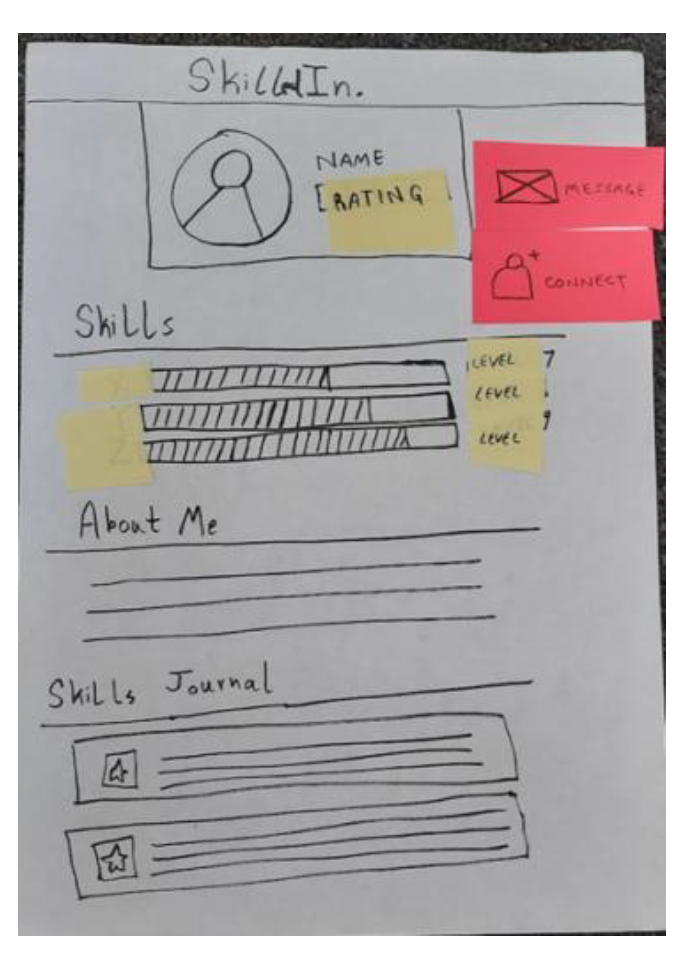 SkilledIn.
NAME
[RATING
MESSAGE
CONNECT
Skills
LEVEL 7
LEVEL
Z LEVEL 9
About Me
Skills Journal